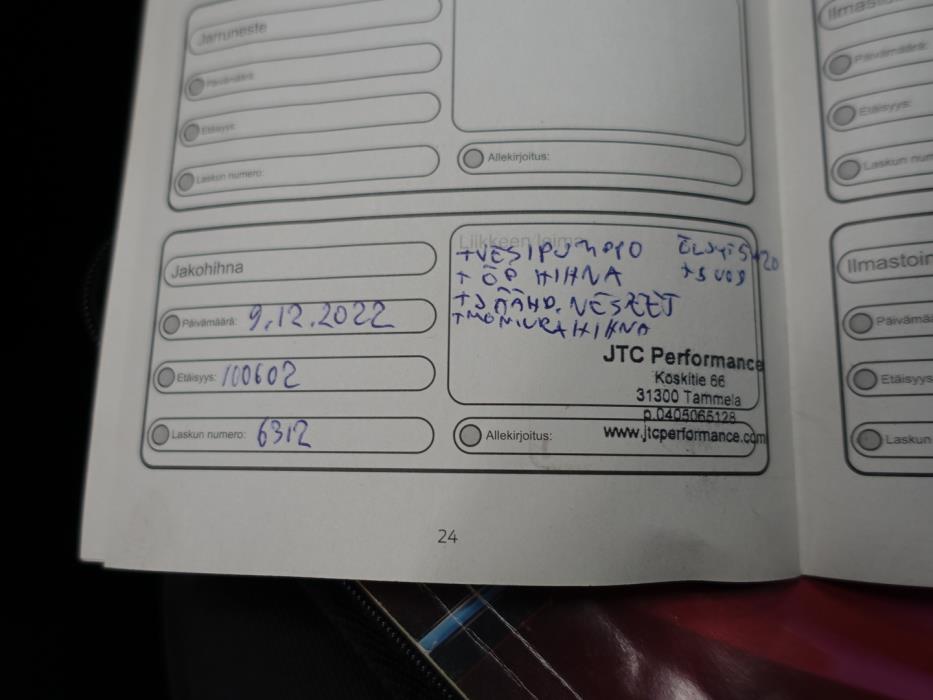 Jarruneste
Päivämäärä:
Etäisyys:
Laskun numero:
Allekirjoitus:
Jakohihna
Päivämäärä: 9.12.2022
Etäisyys: 100602
Laskun numero: 6312
Liikkeen leima
+VESIPUMPPU
+ ÖP HIHNA
+JÄÄHD. NESEET
+MONIURAHIHNA
ÖLJYT 5W20
+ SUOD
JTC Performance
Koskitie 66
31300 Tammela
p.0405065128
www.jtcperformance.com
Allekirjoitus:
24
Päivämäärä:
Etäisyys:
Laskun
Päivämää
Etäisyys
Laskun